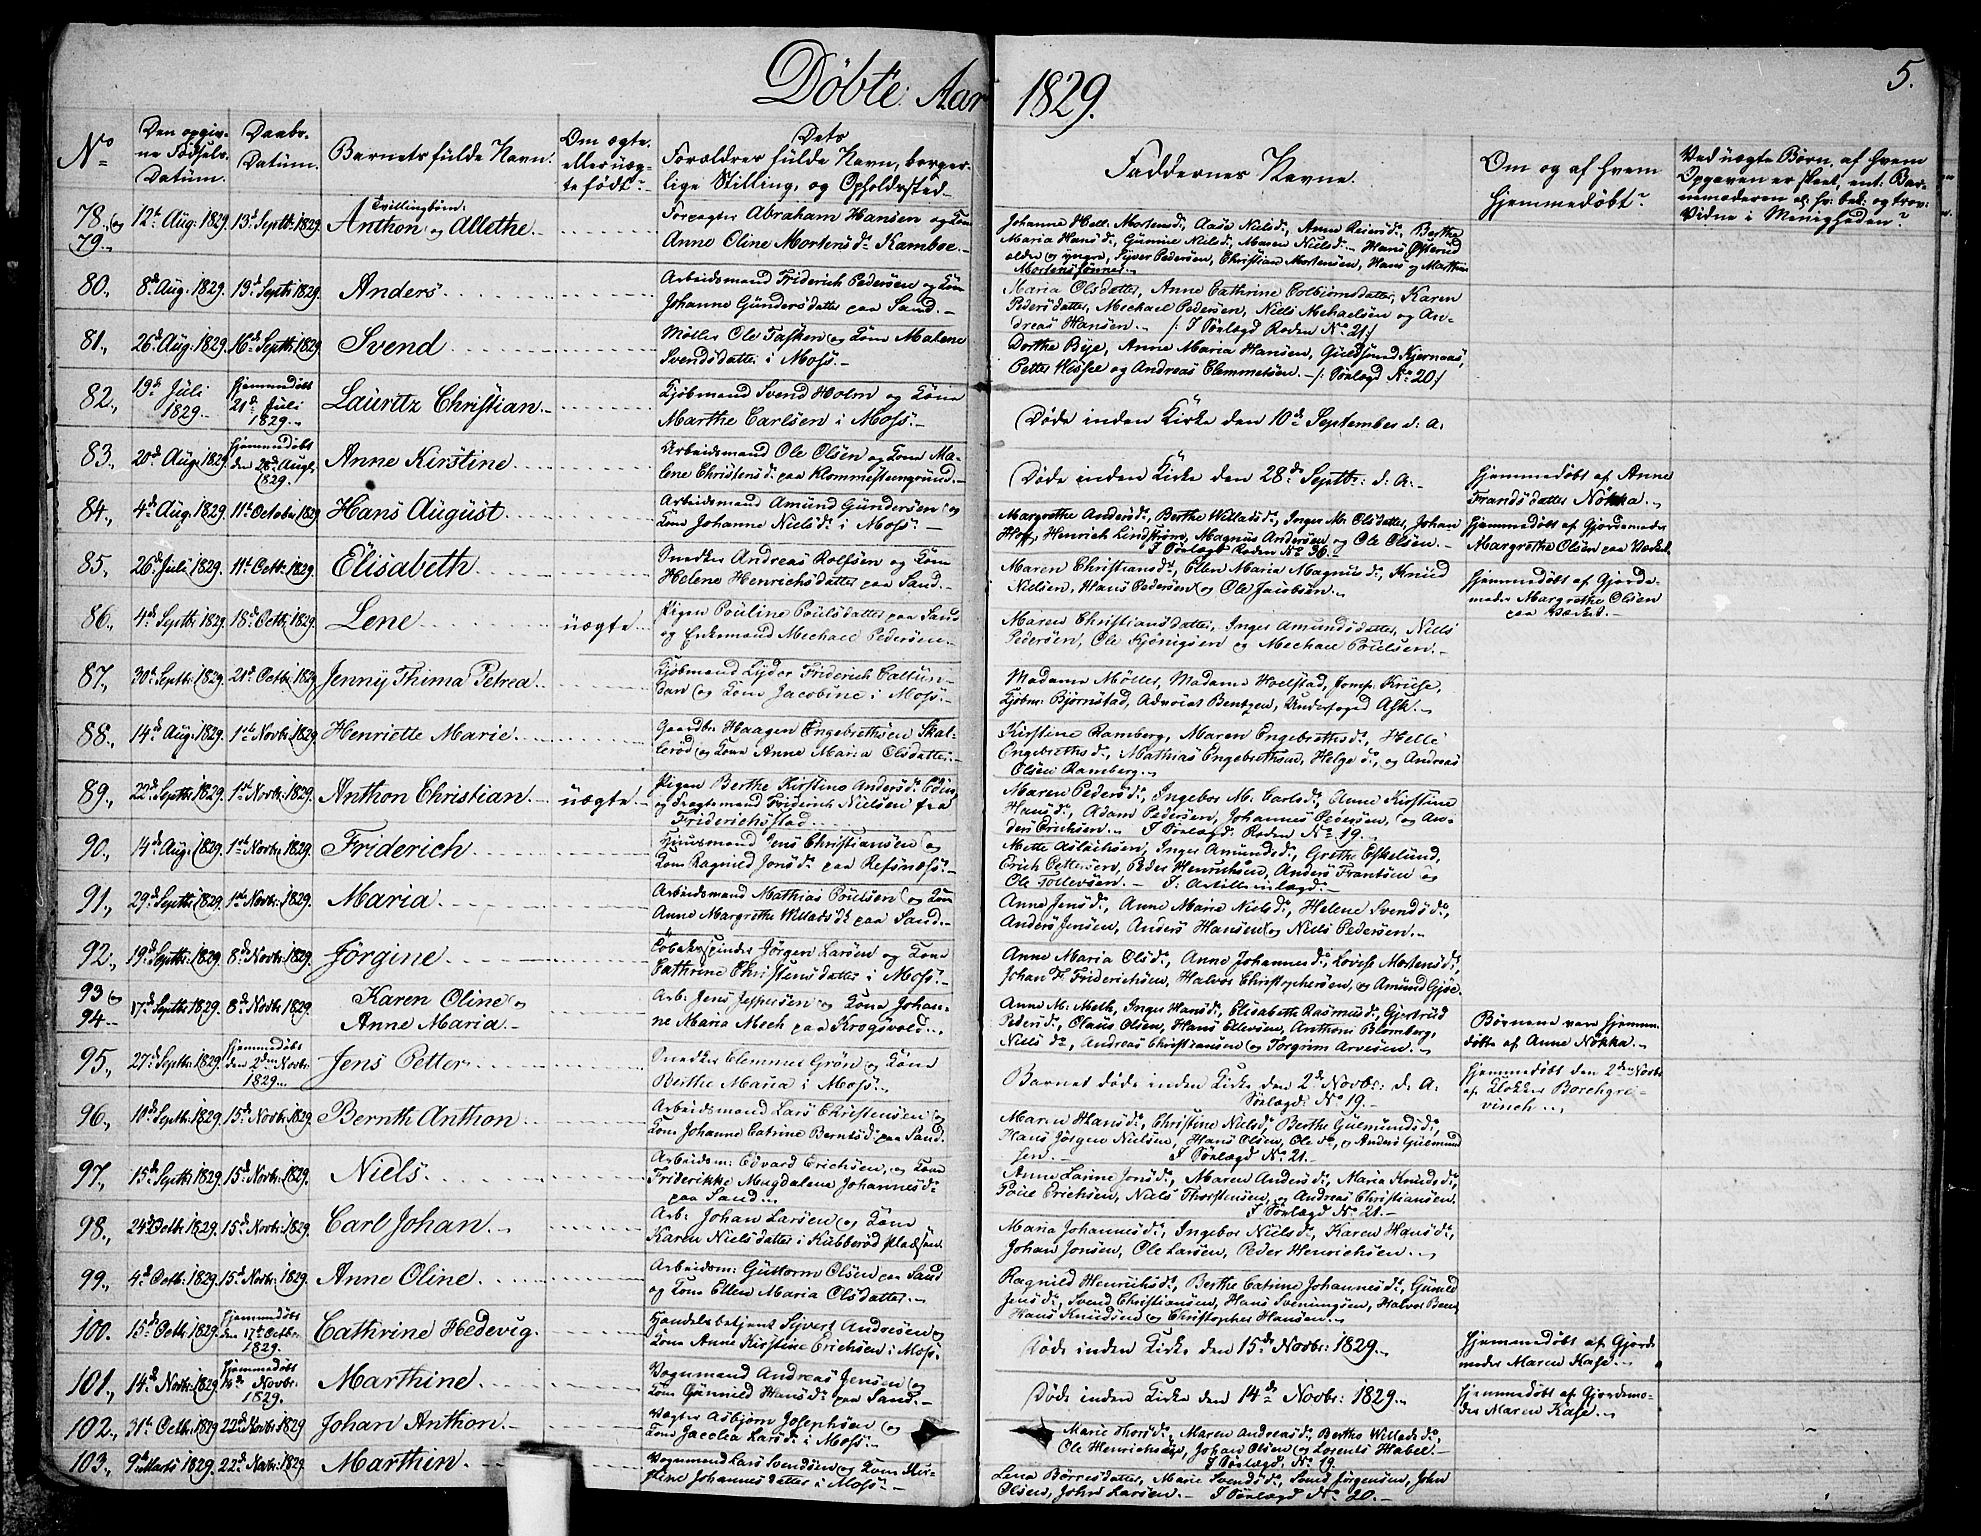 Døbte Aar 1829.
5.
No
Den opgiv-
ne Fødsels-
Datum.
Daabs-
Datum.
Barnets fulde Navn.
Om ægte
eller uæg-
te født?
Dets
Forældres fulde Navn, borger-
lige Stilling, og Opholdssted
Faddernes Navne.
Om og af hvem
hjemmedøbt?
Ved uægte Børn, af hvem
Opgaven er skeet, ent: Bar-
nemoderen el: hv: bek: og trov:
Vidne i Menigheden?
78. og
79.
12t Aug: 1829.
13d Septbr: 1829.
Tvillingbørn:
Anthon og Allethe.
Forpagter Abraham Hansen og Kone
Anne Oline Mortensd: Kamboe.
Johanne Hell: Mortensd:, Aase Nielsd:, Anne Reiersd:, Berthe
Maria Hansd:, Gunine Nielsd:, Maren Nielsd:, Hans Østerud
ældre og yngre, Syver Pedersen, Christian Mortensen, Hans og Mathias
Mortenssønner.
80.
8d Aug: 1829.
13d Septbr 1829.
Anders
Arbeidsmand Friderich Pedersen og Kone
Johanne Gundersdatter paa Sand.
Maria Olsdatter, Anne Cathrine Colbiørnsdatter, Karen
Pedersdatter, Mechael Pedersen, Niels Mechaelsen og An-
dreas Hansen. /: I Førlagd Roden No 21:/
81.
26d Aug: 1829.
16d Septbr: 1829.
Svend
Møller Ole Tasken og Kone Malene
Svendsdatter i Moss.
Dorthe Bye, Anne Maria Hansen, Guldsund Kjernaas,
Petter Wessel og Andreas Clemmetsen. /: Førlagd No 20:/
82.
19d Juli
1829.
hjemmedøbt
21d Juli
1829.
Lauritz Christian.
Kjøbmand Svend Holm og Kone
Marthe Carlsen i Moss.
Døde inden Kirke den 10de September d: A.
83.
20d Aug: 1829.
hjemmedøbt
den 28d Aug:
1829.
Anne Kirstine
Arbeidsmand Ole Olsen og Kone Ma-
lene Christensd: paa Klommestensgrund.
Døde inden Kirke den 28de Septbr: d: A:
hjemmedøbt af Anne
Frandsdatter Nøkka.
84.
4d Aug: 1829.
11t October 1829.
Hans August
Arbeidsmand Amund Gundersen og
Kone Johanne Nielsd: i Moss.
Margrethe Andersd:, Berthe Willadsd:, Inger M: Olsdatter, Johan
Hoff, Henrich Lindstrøm, Magnus Andersen og Ole Olsen.
I Førlagt Roden No 36.
hjemmedøbt af Gjordemoder
Margrethe Olsen paa Værket.
85.
26d Juli 1829.
11t Octbr: 1829.
Elisabeth
Snedker Andreas Rolfsen og Kone
Helene Henrichsdatter paa Sand.
Maren Christiansd:, Ellen Maria Magnusd:, Knud
Nielsen, Hans Pedersen og Ole Jacobsen.
hjemmedøbt af Gjorde-
moder Margrethe Olsen
paa Værket.
86.
4d Septbr: 1829.
18d Octbr: 1829.
Lene
uægte
Pigen Pouline Poulsdatter paa Sand
og Enkemand Mechael Pedersen
Maren Christiansdatter, Inger Amundsdatter, Niels
Pedersen, Ole Kjønigsen og Mechael Poulsen.
87.
30d Septbr: 1829.
21d Octbr: 1829.
Jenny Thima Petrea
Kjøbmand Lyder Friderich Callun-
dan og Kone Jacobine i Moss.
Madame Møller, Madame Hoelstad, Jomf: Kruse,
Kjøbm: Bjørnstad, Advocat Bentzen, Underfoged Ask.
88.
14d Aug: 1829.
1ste Novbr: 1829.
Henriette Marie
Gaardbr: Haagen Engebrethsen Skal-
lerød og Kone Anne Maria Olsdatter.
Kirstine Ramberg, Maren Engebrethsd:, Helle
Engebrethsd:, Mathias Engebrethsen, Helge do:, og Andreas
Olsen Ramberg.
89.
22d Septbr: 1829.
1ste Novbr: 1829.
Anthon Christian
uægte
Pigen Berthe Kirstine Andersd:
og Fragtemand Friderich Nielsen fra
Friderichsstad
Maren Pedersd:, Ingebor M: Carlsd:, Anne Kirstine
Hansd:, Adam Pedersen, Johannes Pedersen, og An-
ders Erichsen. I Førlagd: Roden No 19.
90.
14d Aug: 1829.
1ste Novbr: 1829.
Friderich
Huusmand Jens Christiansen og
Kone Ragnild Jonsd: paa Refsnæss.
Mette Aslachsen, Inger Amundsd:, Grethe Eskelund,
Erich Pettersen, Peder Henrichsen, Anders Frantsen og
Ole Tollevsen. I: Artillerielagd:
91.
29d Septbr: 1829.
1ste Novbr: 1829.
Maria
Arbeidsmand Mathias Poulsen og Kone
Anne Margrethe Willadsd: paa Sand.
Anne Jensd:, Anne Marie Nielsd:, Helene Svendsd:,
Anders Jensen, Anders Hansen og Niels Pedersen.
92.
19d Septbr: 1829.
8d Novbr: 1829.
Jørgine
Tobakspinder Jørgen Larsen og Kone
Cathrine Christensdatter i Moss.
Anne Maria Olsd:, Anne Johannesd:, Lovise Mortensd:,
Johan F: Friderichsen, Halvor Christophersen, og Amund Gjøe.
93 og
94.
17d Septbr: 1829.
8d Novbr: 1829.
Karen Oline og
Anne Maria
Arb: Jens Jespersen og Kone Johan-
ne Maria Mech paa Krogsvold.
Anne M: Meth, Inger Hansd:, Elisabeth Rasmusd:, Gjertrud
Pedersd:, Claus Olsen, Hans Ellevsen, Anthoni Blomberg,
Niels do:, Andreas Christiansen og Torgrim Arvesen.
Børnene vare hjemme-
døbte af Anne Nøkka.
95.
27d Septbr: 1829.
hjemmedøbt
den 2den Novbr:
1829.
Jens Petter
Snedker Clemmet Grøn og Kone
Berthe Maria i Moss.
Barnet døde inden Kirke den 2de Novbr: d: A:
hjemmedøbt den 2den Novbr:
af Klokker Borchgre-
vinch.
96.
10d Septbr: 1829.
15d Novbr: 1829.
Bernth Anthon
Arbeidsmand Lars Christensen og
Kone Johanne Catrine Berntsd: paa Sand.
Førlagd: No 19.
Maren Hansd:, Christine Nielsd:, Berthe Guemundsd:,
Hans Jørgen Nielsen, Hans Olsen, Ole do:, og Anders Guemund
sen.
I Førlagd No 21.
97.
15d Septbr: 1829.
15d Novbr: 1829.
Niels
Arbeidsm: Edvard Erichsen, og Kone
Friderikke Magdalene Johannesd:
paa Sand.
Anne Lanne Jonsd:, Maren Andersd:, Maria Knudsd:,
Poul Erichsen, Niels Thorstensen, og Andreas Christiansen.
I Førlagd No 21.
98.
24d Octbr: 1829.
15d Novbr: 1829.
Carl Johan
Arb: Johan Larsen og Kone
Karen Nielsdatter i Kubberød pladsen
Maria Johannesd:, Ingebor Nielsd:, Karen Hansd:,
Johan Jonsen, Ole Larsen, Peder Henrichsen.
99.
4d Octbr: 1829.
15d Novbr: 1829.
Anne Oline
Arbeidsm: Guttorm Olsen paa Sand
og Kone Ellen Maria Olsdatter.
Ragnild Henrichsd:, Berthe Catrine Johannesd:, Guneld
Jensd:, Svend Christiansen, Hans Svenungsen, Halvor
Hans Knudsen og Christopher Hansen.
100.
15d Octbr: 1829.
hjemmedøbt
den 17t Octbr:
1829.
Cathrine Hedevig
Handelsbetjent Syvert Andresen og
Kone Anne Kirstine Erichsen i Moss.
Døde inden Kirke den 15de Novbr: 1829.
hjemmedøbt af Gjorde
moder Maren Kase.
101.
14d Novbr: 1829.
hjemmedøbt
14de Novbr:
1829.
Marthine
Vognmand Andreas Jensen og
Kone Gunnild Hansd: paa Sand.
Døde inden Kirke den 14de Novbr: 1829.
hjemmedøbt af Gjordemo-
der Maren Kase.
102.
31t Octbr: 1829
22d Novbr: 1829
Johan Anthon
Vægter Asbjørn Josephsen og
Kone Jacobia Larsd: i Moss.
Marie Thorsd:, Maren Andreasd:, Berthe Willadsd:,
Ole Henrichsen, Johan Olsen og Lorents Habel.
I Førlagd: No 19.
103.
9de Marts 1829.
22d Novbr: 1829.
Marthin
Vognmand Lars Svendsen og Kone
Johannesdatter i Moss.
Lena Børresdatter, Marie Svendsd:, Svend Jørgensen, John
Olsen, John Larsen. I Førlagd No 20.